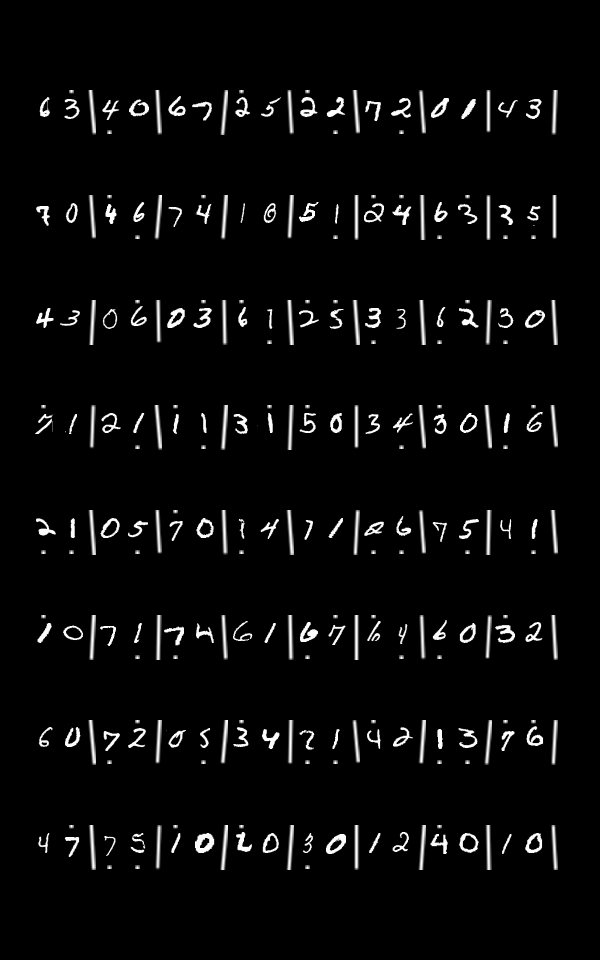 6 3 | 4 0 | 6 7 | 2 5 | 2 2 | 7 2 | 0 1 | 4 3 |
7 0 | 4 6 | 7 4 | 1 0 | 5 1 | 2 4 | 6 3 | 3 5 |
4 3 | 0 6 | 0 3 | 6 1 | 2 5 | 3 3 | 6 2 | 3 0 |
7 1 | 2 1 | 1 1 | 3 1 | 5 0 | 3 4 | 3 0 | 1 6 |
2 1 | 0 5 | 7 0 | 1 4 | 7 1 | 2 6 | 7 5 | 4 1 |
1 0 | 7 1 | 7 4 | 6 1 | 6 7 | 6 4 | 6 0 | 3 2 |
6 0 | 7 2 | 0 5 | 3 4 | 2 1 | 4 2 | 1 3 | 7 6 |
4 7 | 7 5 | 1 0 | 2 0 | 3 0 | 1 2 | 4 0 | 1 0 |